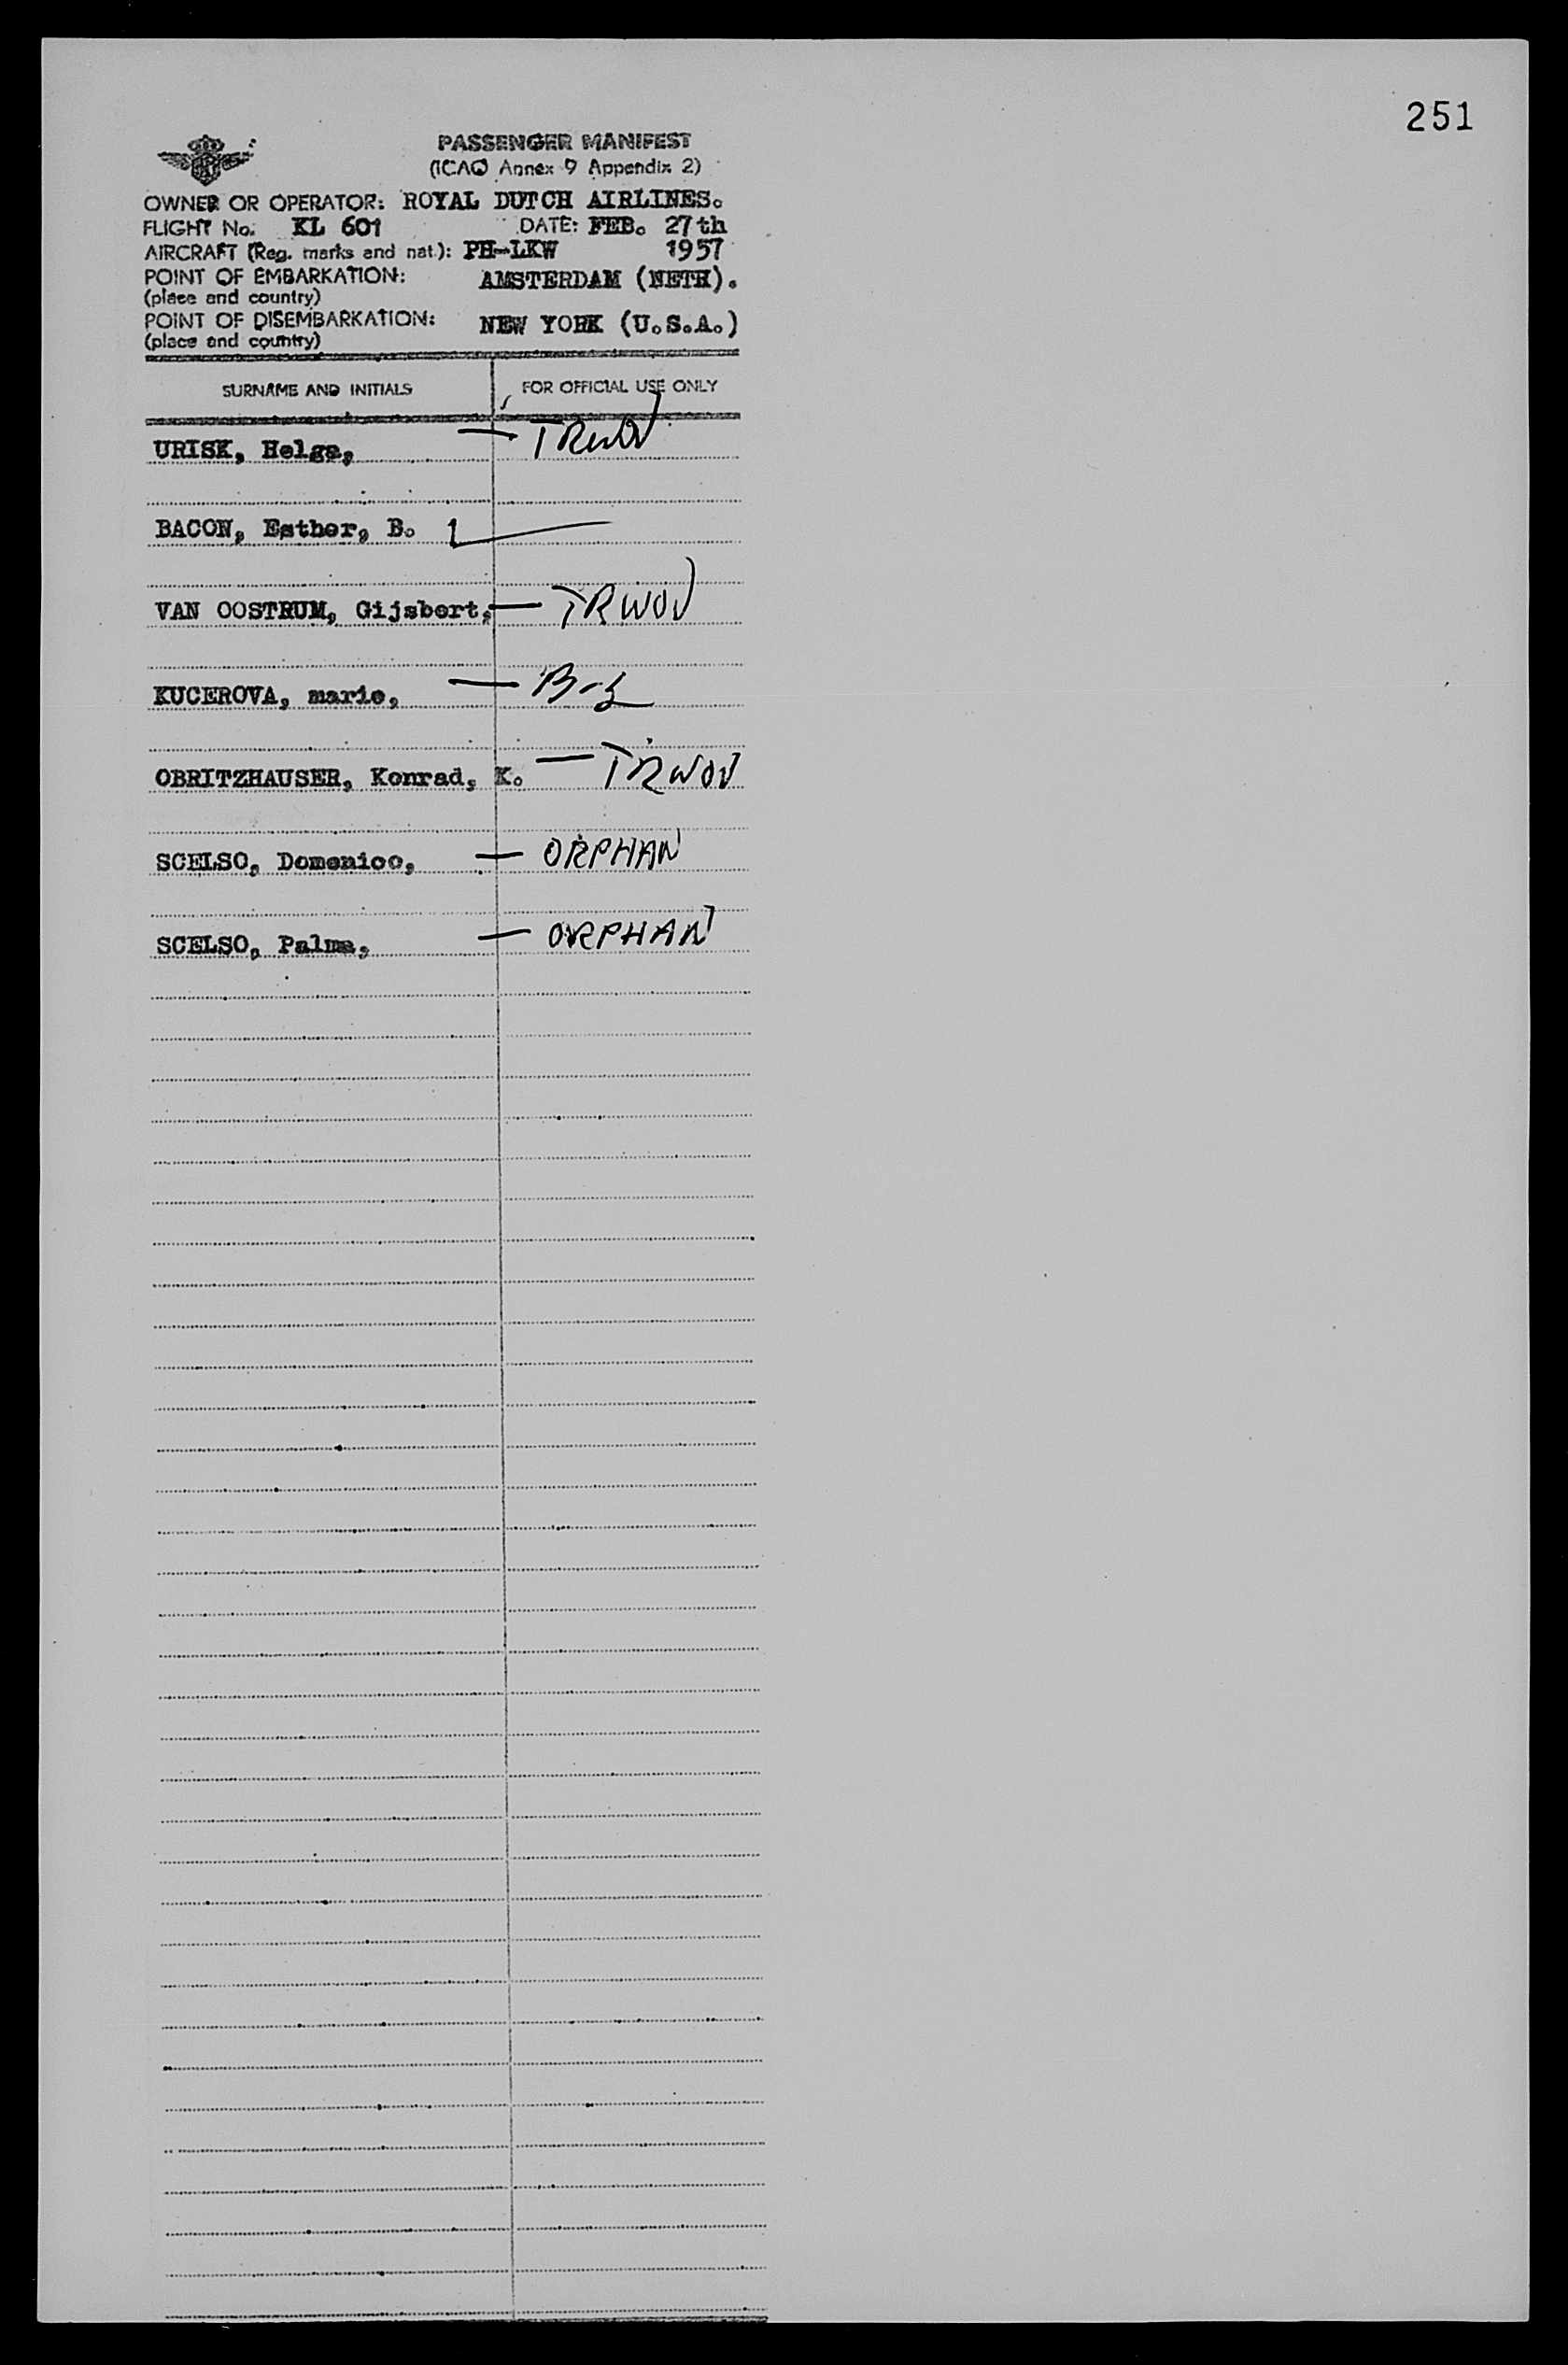 251
PASSENGER MANIFEST
(ICAO Annex 9 Appendix 2)
OWNER OR OPERATOR: ROYAL DUTCH AIRLINES.
FLIGHT No: KL 601 DATE: FEB. 27th
AIRCRAFT (Reg. marks and nat.): PH-LKW 1957
POINT OF EMBARKATION: AMSTERDAM (NETH).
(place and country)
POINT OF DISEMBARKATION: NEW YORK (U.S.A.)
(place and country)
SURNAME AND INITIALS FOR OFFICIAL USE ONLY
URISK, Helga, — TRWOV
BACON, Esther, B.
VAN OOSTRUM, Gijsbert, — TRWOV
KUCEROVA, marie, — B-2
OBRITZHAUSER, Konrad, K. — TRWOV
SCELSO, Domenico, — ORPHAN
SCELSO, Palma, — ORPHAN